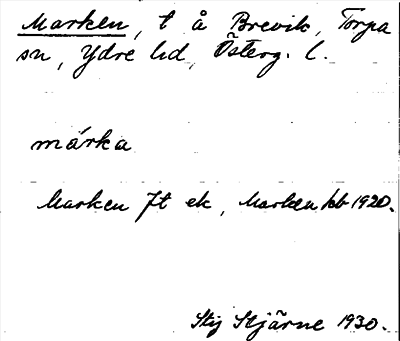 Marken, t å Brevik, Torpa
sn, Ydre hd, Österg. l.
márka
Marken Jt ek, Marken kb 1920.
Stig Stjärne 1930.